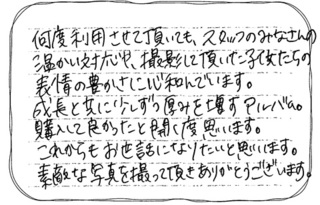 何度利用させて頂いても、スタッフのみなさんの
温かい対応や、撮影して頂いた子供たちの
表情の豊かさに心和んでいます。
成長と共に少しずつ厚みを増すアルバム。
購入して良かったと開く度思います。
これからもお世話になりたいと思います。
素敵な写真を撮って頂きありがとうございます。